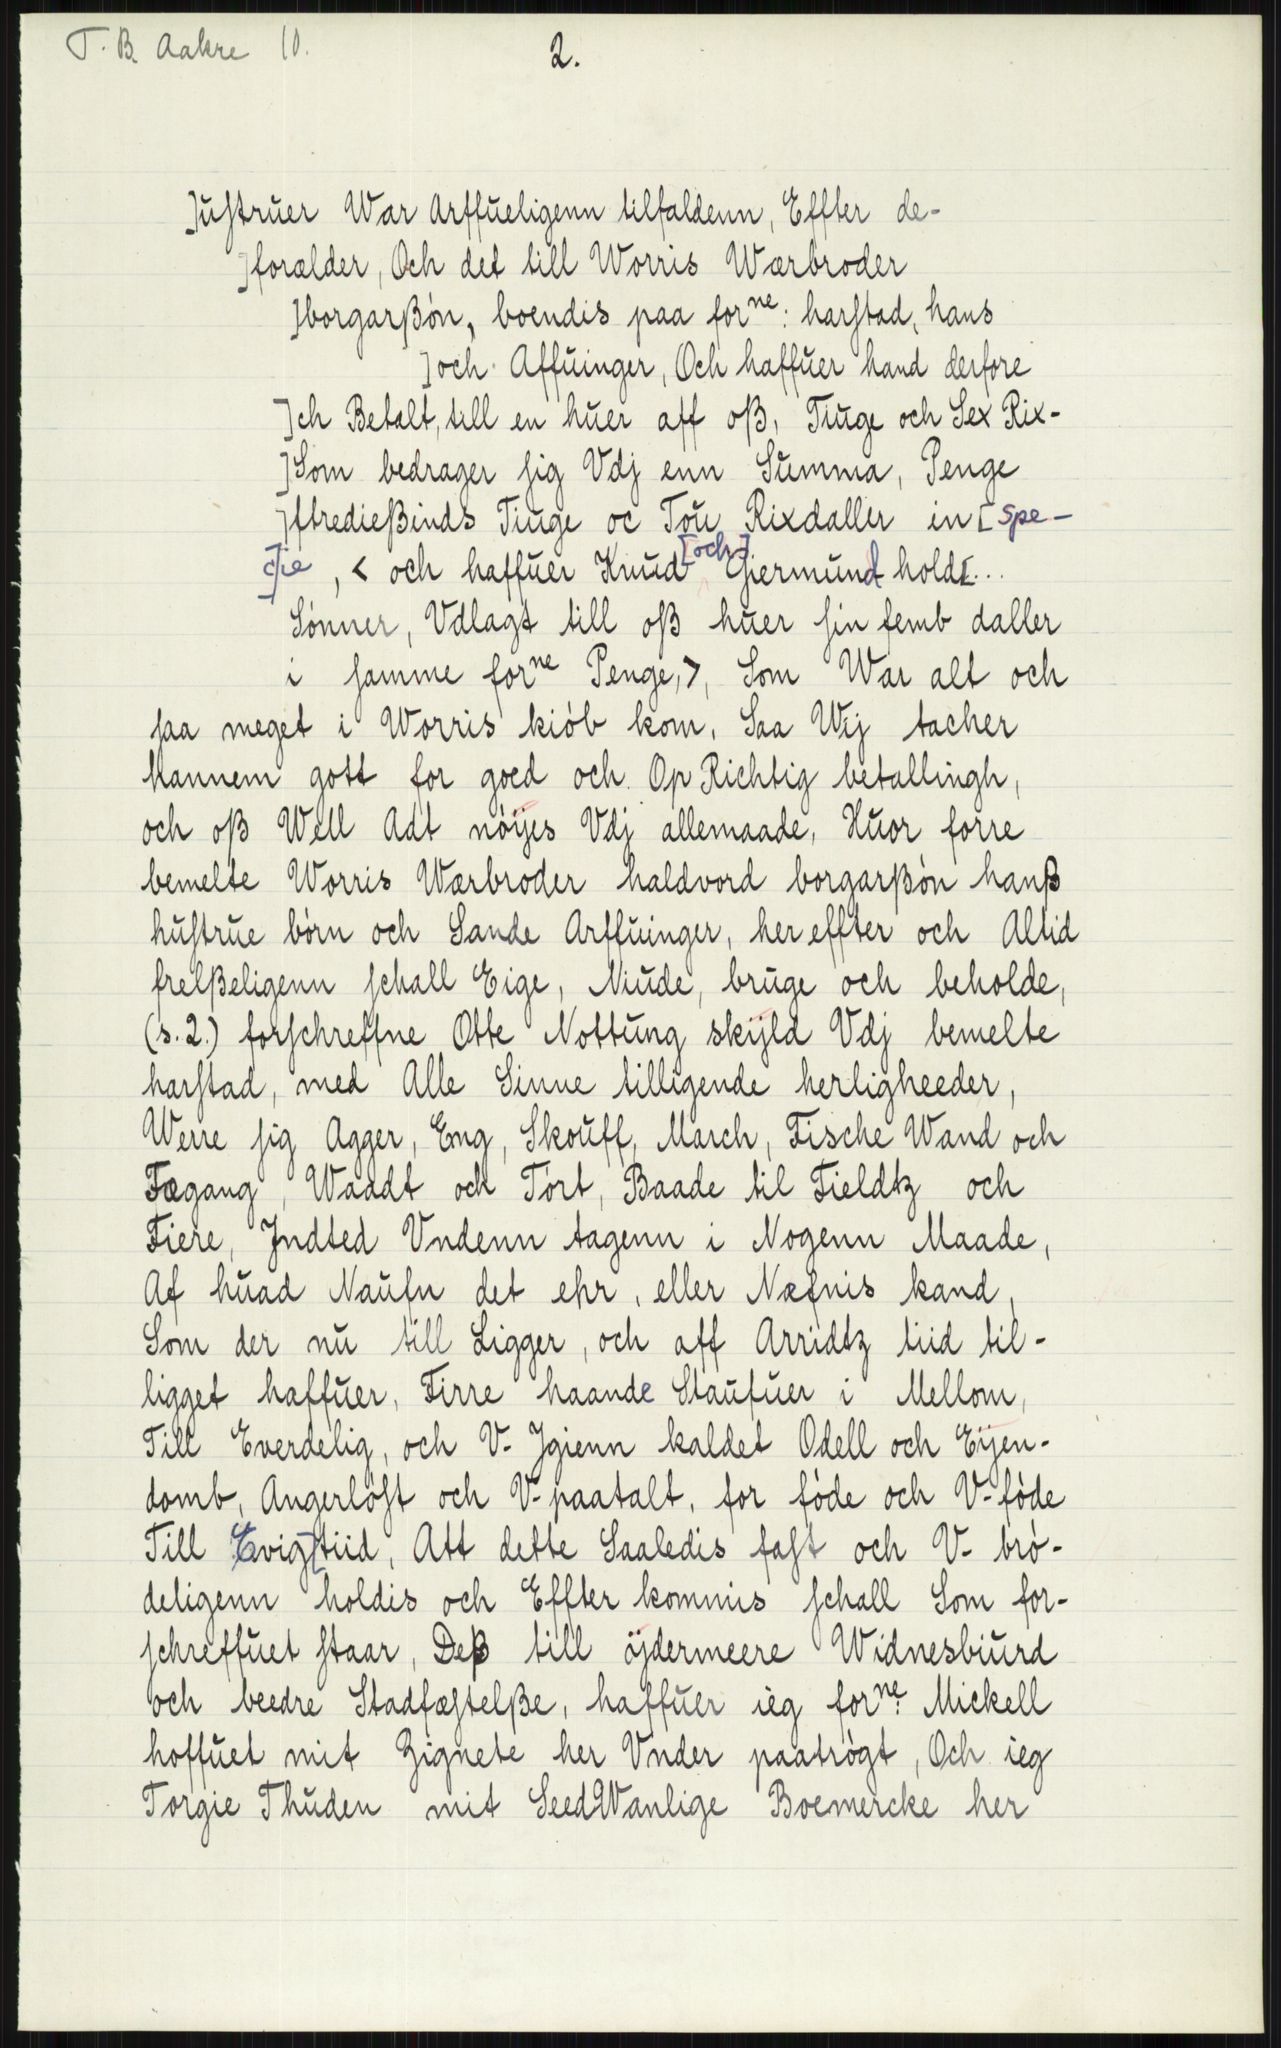 T. B. Aakre 10.
2.
]ustruer War Arffueligenn tilfaldenn, Effter de-
]forælder, Och det till Worris Wærbroder
]borgarßøn, boendis paa for<sup>ne</sup>: harstad, hans
] och Affuinger, Och haffuer hand derfore
]ch Betalt, till en huer aff oß, Tiuge och Sex Rix-
]Som bedrager sig Vdj enn Summa, Penge
]ftredießinds Tiuge oc Tou Rixdaller in [spe-
c]ie, < och haffuer Knud [och] Giermund hold[...
Sønner, Vdlagt till oß huer sin femb daller
i samme for<sup>ne</sup> Penge, >, Som War alt och
saa meget i Worris kiøb kom, Saa Wij tacher
hannem gott for goed och Op Richtig betallingh,
och oß Well Adt nøÿes Vdj allemaade, Huor forre
bemelte Worris Wærbroder haldvord borgarßøn hanß
hustrue børn och Sande Arffuinger, her effter och Altid
frelßeligenn schall Eige, Niude, bruge och beholde,
(s.2.) forschreffne Otte Nottung skÿld Vdj bemelte
harstad, med Alle Sinne tilligende herligheeder,
Werre sig Agger, Eng, Skouff, March, Fische Wand och
Fægang, Waadt och Tørt, Baade til Fieldtz och
Fiere, Jndted Vndenn tagenn i Nogenn Maade,
Af huad Naufn det ehr, eller Næfnis kand,
Som der nu till Ligger, och aff Arridtz tiid til-
ligget haffuer, Firre haande Staufuer i Mellom,
Till Everdelig, och V- Jgienn kaldet Odell och Eÿen-
domb, Angerløst och V- paatalt, for føde och V- føde
Till Evig[tiid, Att dette Saaledis fast och V- brø-
deligenn holdis och Effter kommis schall Som for-
schreffuet staar, Deß till ÿdermeere Widnesbiurd
och beedre Stadfæstelße, haffuer ieg for<sup>ne</sup>: Mickell
hoffuet mit Zignete her Vnder paatrøgt, Och ieg
Torgie Thuden mit SeedWanlige Boemercke her